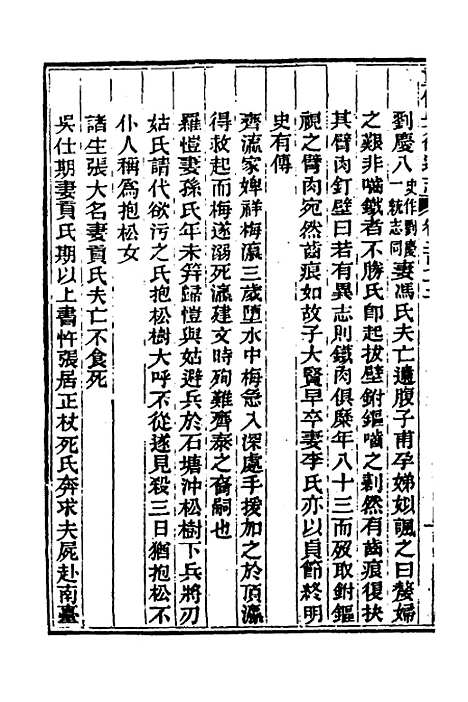 劉慶八史作劉慶一統志同妻馮氏夫亡遺腹子甫孕娣姒諷之曰嫠婦
之艱非嚙鐵者不勝氏卽起拔壁附鏂嚙之剨然有齒痕復抉
其臂肉釘壁曰若有異志則鐵肉俱糜年八十三而歿取附鏂
視之臂肉宛然齒痕如故子大賢早卒妻李氏亦以貞節終明
史有傳
齊流家婢祥梅瀛三歲墮水中梅急入深處手援加之於頂瀛
得救起而梅遂溺死瀛建文時殉難齊泰之裔嗣也
羅愷妻孫氏年未笄歸愷與姑避兵於石塘沖松樹下兵將刃
姑氏請代欲污之氏抱松樹大呼不從遂見殺三日猶抱松不
仆人稱為抱松女
諸生張大名妻貢氏夫亡不食死
吳仕期妻貢氏期以上書忤張居正杖死氏奔求夫屍赴南臺